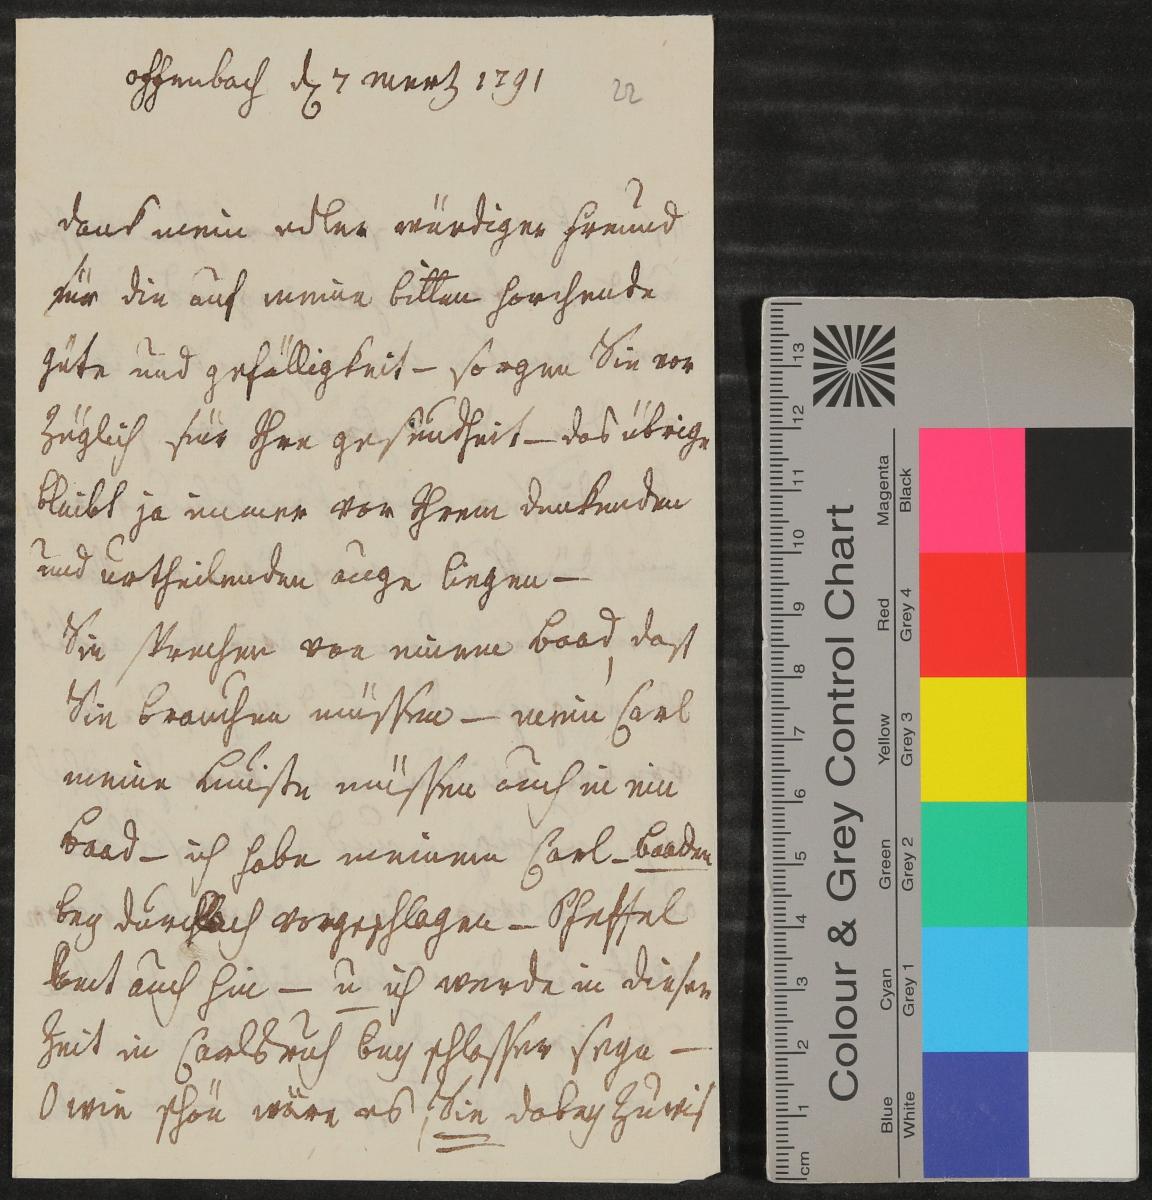 offenbach d 7 mertz 1791
22
dank mein edler würdiger freund
für die auf meine bitten horchende
güte und gefälligkeit – sorgen Sie vor
züglich für Ihre gesundheit – das übrige
bleibt ja immer vor Ihrem denkenden
und urtheilenden auge liegen –
Sie sprechen von einem baad, dast
Sie brauchen müssen – mein Carl
meine Luise müssen auch in ein
baad – ich habe meinem Carl – baaden
bey durchlach vorgeschlagen – Scheffel
komt auch hin – u ich werde in dieser
Zeit in Carlsruh bey schlosser seyn –
O wie schön wäre es, Sie dabey zu wis
Colour & Grey Control Chart
Blue Cyan Green Yellow Red Magenta
White Grey 1 Grey 2 Grey 3 Grey 4 Black
cm 1 2 3 4 5 6 7 8 9 10 11 12 13